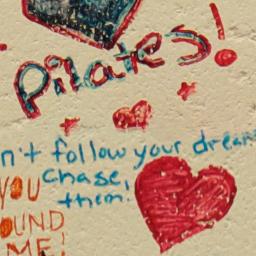 Pilates!
n't follow your dream
chase,
them.
YOU
OUND
ME!